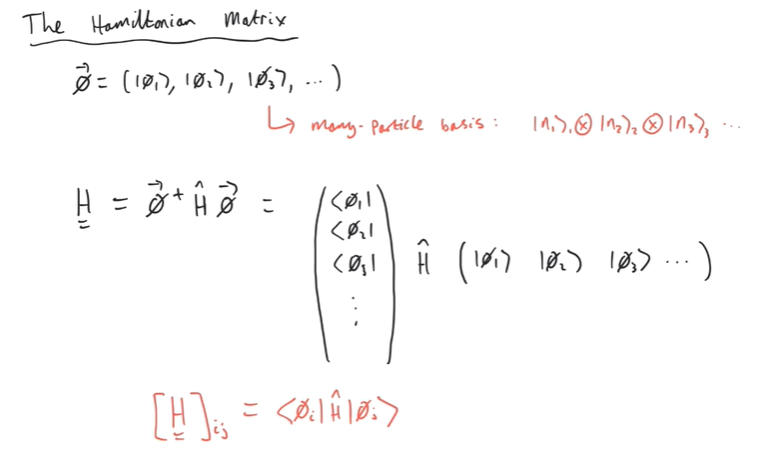 The Hamiltonian Matrix
ϕ⃗ = (|ϕ₁⟩, |ϕ₂⟩, |ϕ₃⟩, ...)
↳ many-particle basis: |n₁⟩₁ ⊗ |n₂⟩₂ ⊗ |n₃⟩₃ ...
H = ϕ⃗⁺ Ĥ ϕ⃗ = (⟨ϕ₁| ⟨ϕ₂| ⟨ϕ₃| ⋮) Ĥ (|ϕ₁⟩ |ϕ₂⟩ |ϕ₃⟩ ...)
[H]ᵢⱼ = ⟨ϕᵢ|Ĥ|ϕⱼ⟩